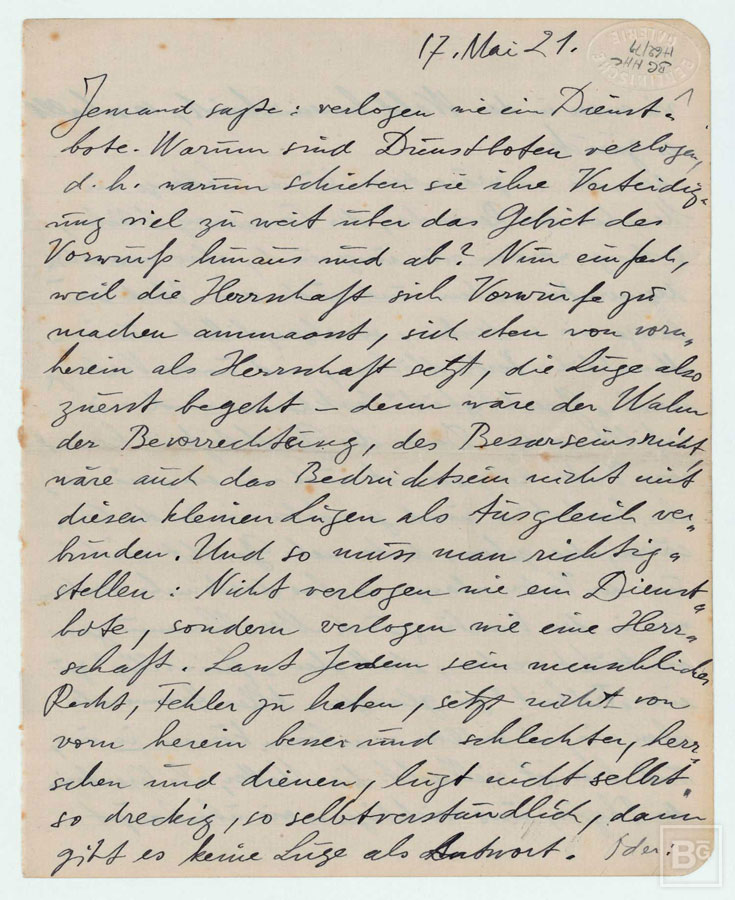 17. Mai 21.
BG HHC
H 62/79
Jemand sagte: verlogen wie ein Dienst-
bote. Warum sind Dienstboten verlogen,
d. h. warum schieben sie ihre Verteidig-
ung viel zu weit über das Gebiet des
Vorwurfs hinaus und ab? Nun einfach,
weil die Herrschaft sich Vorwürfe zu
machen anmaasst, sich eben von vorn-
herein als Herrschaft setzt, die Lüge also
zuerst begeht – denn wäre der Wahn
der Bevorrechtung, des Besserseins nicht,
wäre auch das Bedrücktsein nicht mit
diesen kleinen Lügen als Ausgleich ver-
bunden. Und so muss man richtig-
stellen: Nicht verlogen wie ein Dienst-
bote, sondern verlogen wie eine Herr-
schaft. Lasst Jedem sein menschliches
Recht, Fehler zu haben, setzt nicht von
vorn herein besser und schlechter, herr-
schen und dienen, lügt nicht selbst
so dreckig, so selbstverständlich, dann
gibt es keine Lüge als Antwort.
BG